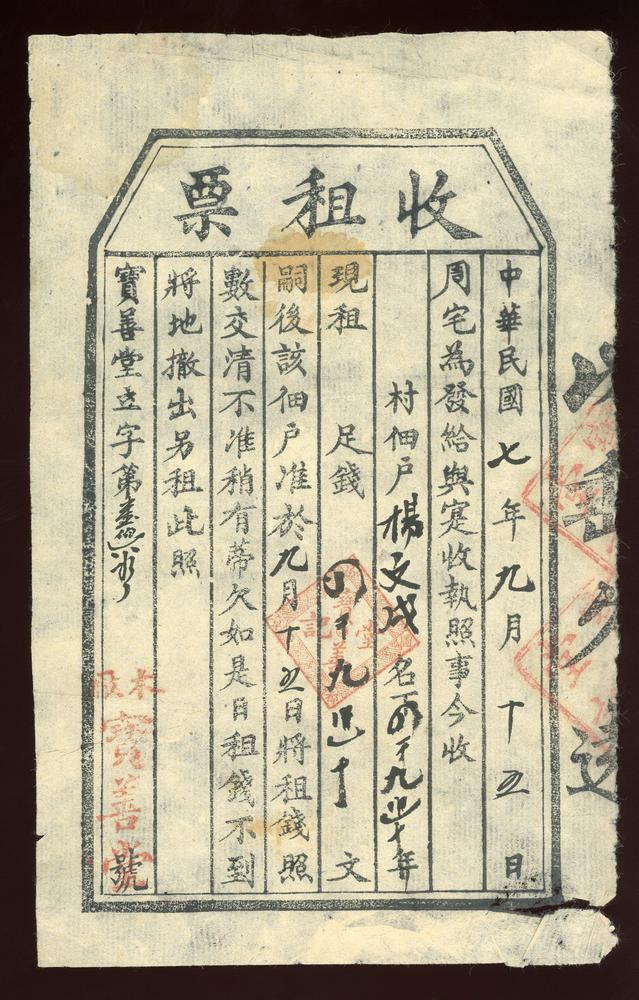 收租票
中華民國七年九月十五日
周宅為發給與寔收執照事今收
村佃戶楊文成名下
現租足錢四千九百十文
嗣後該佃戶准於九月十五日將租錢照
數交清不准稍有蒂欠如是日租錢不到
將地撤出另租此照
寶善堂立字第號
寶善堂